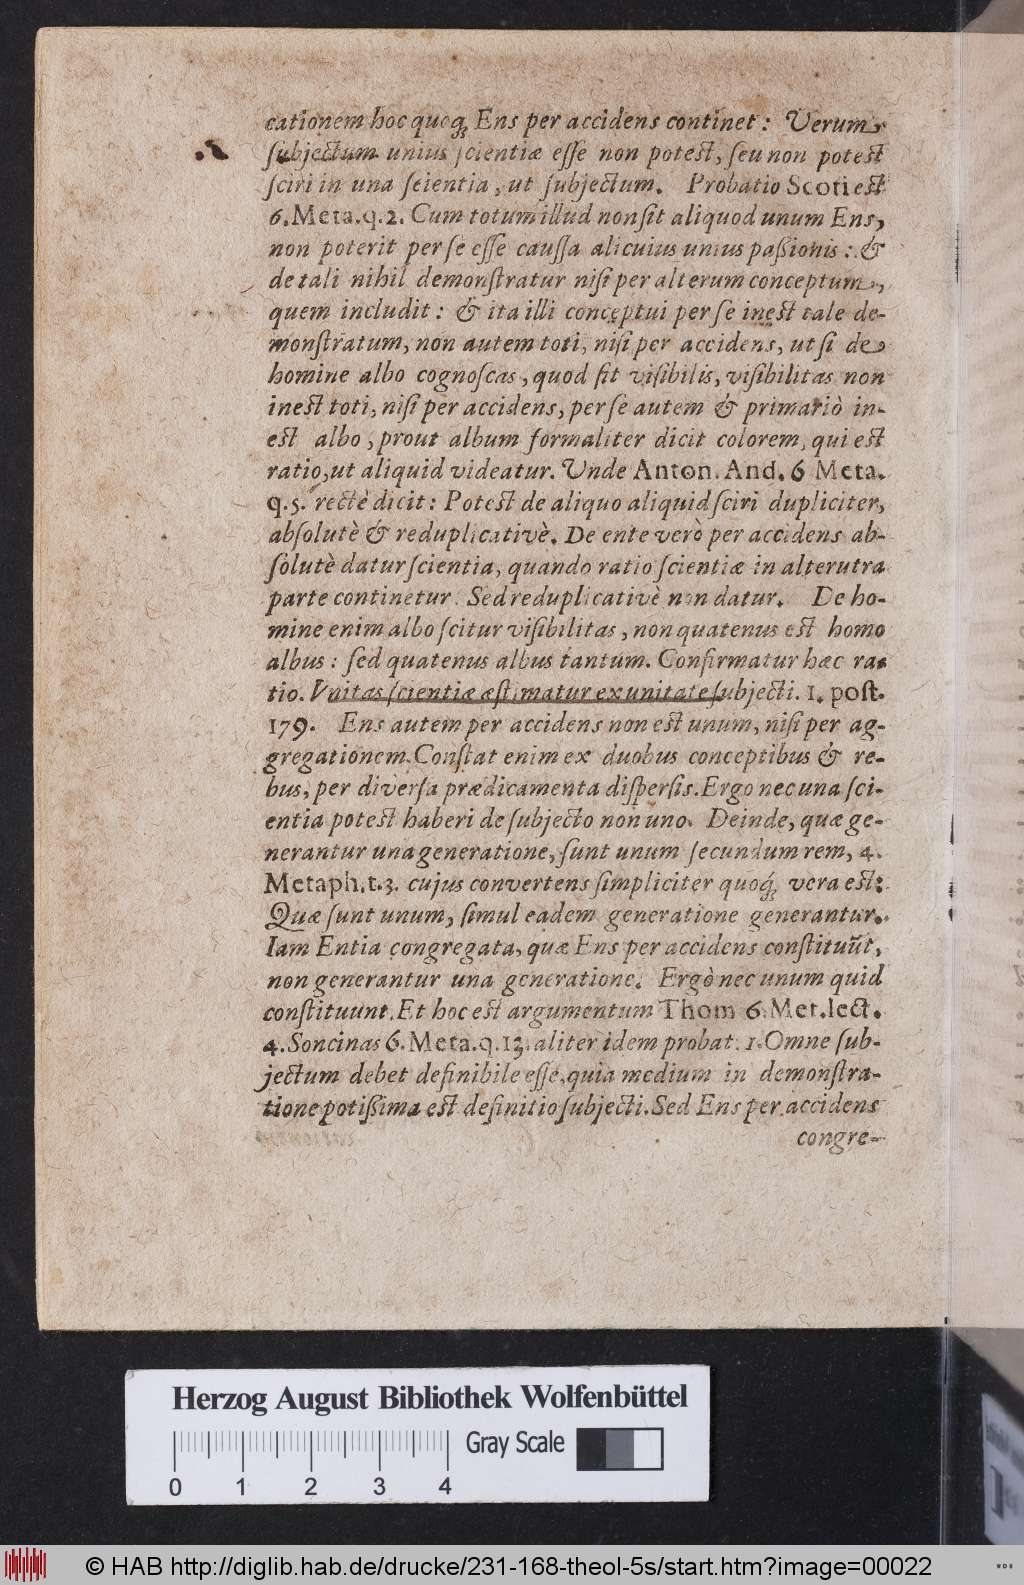 cationem hoc quoq́ꝫ Ens per accidens continet: Verum
ſubjectum unius ſcientiæ eſſe non poteſt, ſeu non poteſt
ſciri in una ſcientia, ut ſubjectum. Probatio Scoti eſt
6. Meta. q. 2. Cum totum illud non ſit aliquod unum Ens,
non poterit per ſe eſſe cauſſa alicuius unius paßionis: &
de tali nihil demonſtratur niſi per alterum conceptum,
quem includit: & ita illi conceptui per ſe ineſt tale de-
monſtratum, non autem toti, niſi per accidens, ut ſi de
homine albo cognoſcas, quod ſit viſibilis, viſibilitas non
ineſt toti, niſi per accidens, per ſe autem & primariò in-
eſt albo, prout album formaliter dicit colorem, qui eſt
ratio, ut aliquid videatur. Unde Anton. And. 6 Meta.
q. 5. rectè dicit: Poteſt de aliquo aliquid ſciri dupliciter,
abſolutè & reduplicativè. De ente verò per accidens ab-
ſolutè datur ſcientia, quando ratio ſcientiæ in alterutra
parte continetur. Sed reduplicativè non datur. De ho-
mine enim albo ſcitur viſibilitas, non quatenus eſt homo
albus: ſed quatenus albus tantum. Confirmatur hæc ra-
tio. Vnitas ſcientiæ æſtimatur ex unitate ſubjecti. 1. poſt.
179. Ens autem per accidens non eſt unum, niſi per ag-
gregationem. Conſtat enim ex duobus conceptibus & re-
bus, per diverſa prædicamenta diſperſis. Ergo nec una ſci-
entia poteſt haberi de ſubjecto non uno. Deinde, quæ ge-
nerantur una generatione, ſunt unum ſecundum rem, 4.
Metaph. t. 3. cujus convertens ſimpliciter quoq́ꝫ vera eſt:
Quæ ſunt unum, ſimul eadem generatione generantur.
Iam Entia congregata, quæ Ens per accidens conſtituũt,
non generantur una generatione. Ergò nec unum quid
conſtituunt. Et hoc eſt argumentum Thom 6. Met. lect.
4. Soncinas 6. Meta. q. 13. aliter idem probat. 1. Omne ſub-
jectum debet definibile eſſe, quia medium in demonſtra-
tione potißima eſt definitio ſubjecti. Sed Ens per accidens
congre-
Herzog August Bibliothek Wolfenbüttel
Gray Scale
0 1 2 3 4
© HAB http://diglib.hab.de/drucke/231-168-theol-5s/start.htm?image=00022